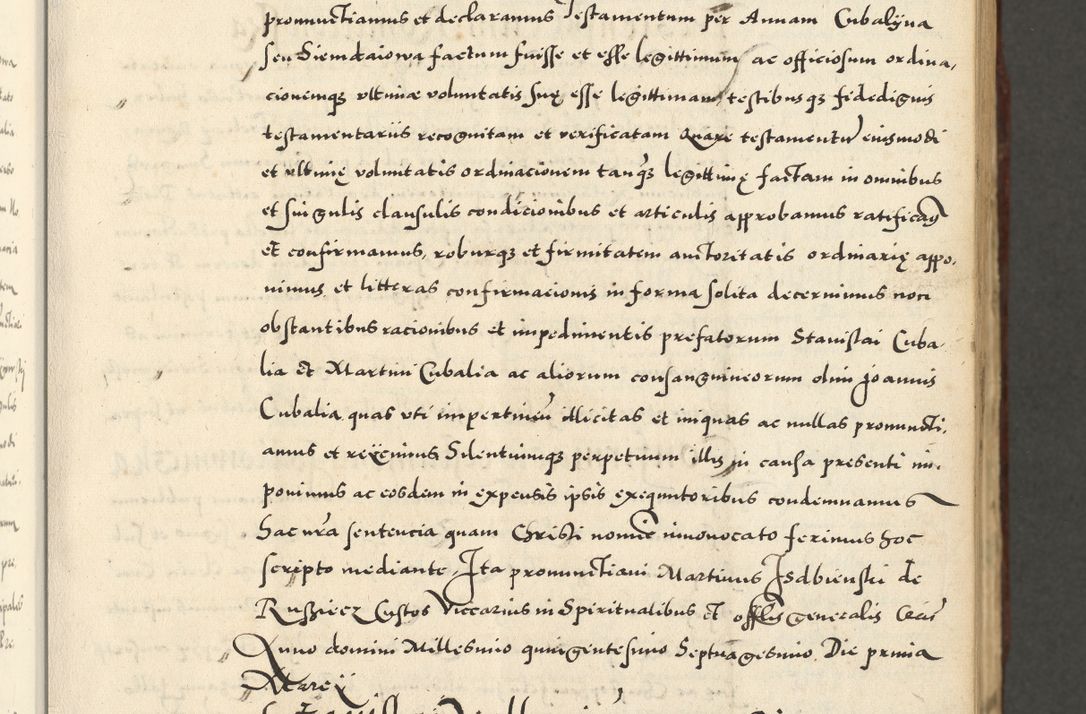 pronunctiamus et declaramus Testamentum per Annam Cubalyna
seu Siemdaiowa factum fuisse et esse legittimum ac officiosum ordina,
cionemqz vltimæ voluntatis suę esse legittimam testibusqz fidedignis
testamentariis recognitam et verificatam Quare testamentū eiusmodi
et vltimę voluntatis ordinacionem tanqz legittimę factam in omnibus
et singulis clausulis condicionibus et articulis approbamus ratificamus
et confirmamus, roburqz et firmitatem auctoritatis ordinarię appo,
nimus et litteras confirmacionis in forma solita decernimus non
obstantibus racionibus et impedimentis prefatorum Stanislai Cuba,
lia et Martini Cubalia ac aliorum consanguineorum olim Joannis
Cubalia quas vti impertinen illicitas et iniquas ac nullas pronuncti,
amus et reycimus Silentiumqz perpetuum illis in causa presenti im,
ponimus ac eosdem in expensis ipsis exequutoribus condemnamus
hac nrā sentencia quam Christi nomine innouocato ferimus hoc
scripto mediante, Ita pronunctiaui Martinus Isdbienski de
Rusziecz Custos Viccarius in Spiritualibus et offlis generalis Crac
Anno domini Millesimo quingentesimo Septuagesimo Die prima
Marcy